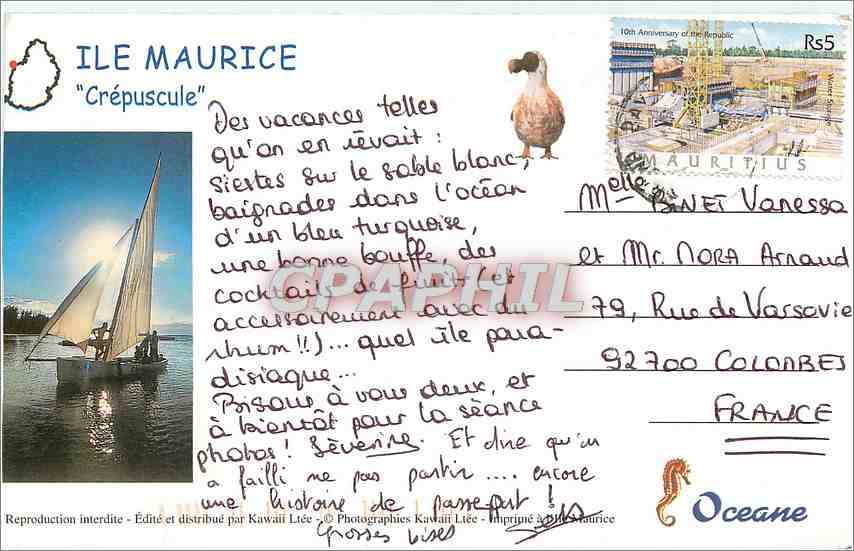 ILE MAURICE
"Crépuscule"
Des vacances telles
qu'on en rêvait :
siestes sur le sable blanc,
baignades dans l'océan
d'un bleu turquoise,
une bonne bouffe, des
cocktails de fruits (et
accessoirement avec du
rhum !!)... quel île para-
disiaque...
Bisous à vous deux, et
à bientôt pour la séance
photos ! Séverine. Et dire qu'on
a failli ne pas partir .... encore
une histoire de passeport !
Grosses bises
10th Anniversary of the Republic
Rs5
Water Supply
MAURITIUS
Melle BINET Vanessa
et Mr. NORA Arnaud
79, Rue de Varsovie
92700 COLOMBES
FRANCE
Oceane
Reproduction interdite - Édité et distribué par Kawaii Ltée - © Photographies Kawaii Ltée - Imprimé à l'Ile Maurice
CPAPHIL